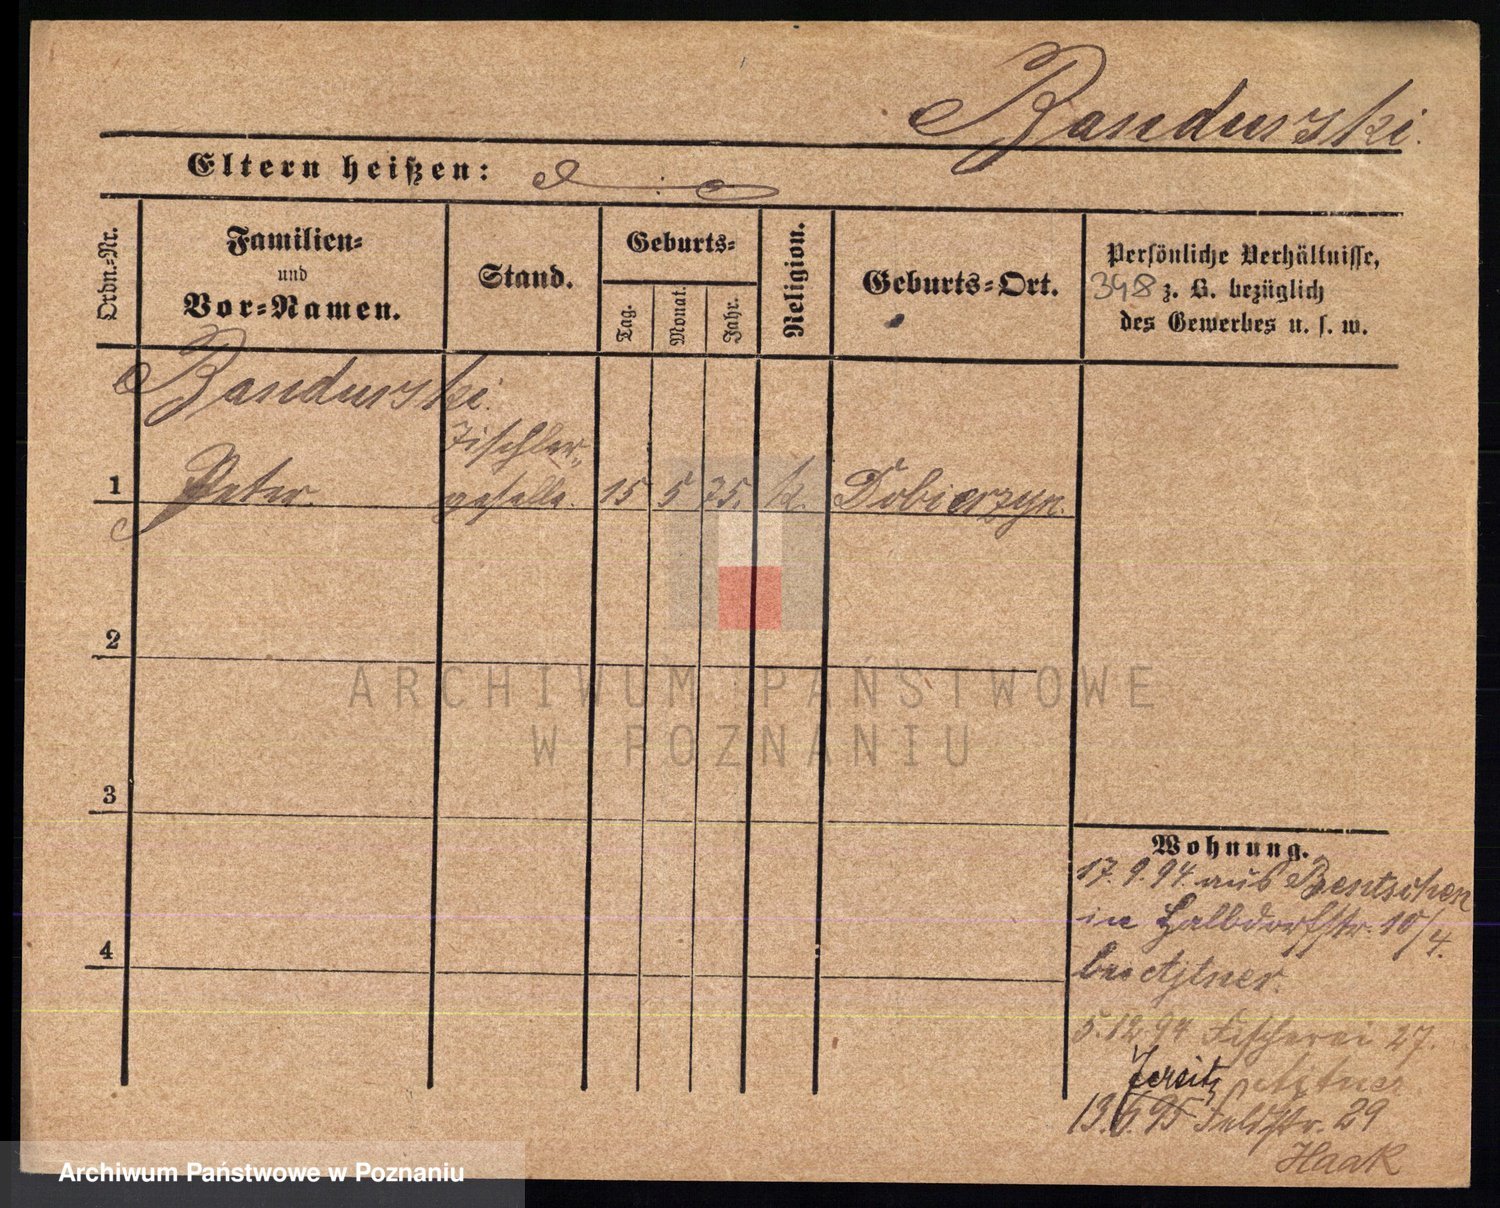 Bandurski.
Eltern heißen:
Ordn.-Nr.
Familien-
und
Vor-Namen.
Stand.
Geburts-
Tag.
Monat.
Jahr.
Religion.
Geburts-Ort.
Persönliche Verhältnisse,
348 z. B. bezüglich
des Gewerbes u. s. w.
Bandurski.
Tischler-
1 Peter. geselle. 15 5 75. k. Dobierzyn.
2
3
4
Wohnung.
17.9.94. aus Bentschen
in Halbdorfstr. 10/4.
bei
5.12.94 Fischerei 27.
Jersitz
13.6.95 Feldstr. 29
Haak
ARCHIWUM PAŃSTWOWE
W POZNANIU
Archiwum Państwowe w Poznaniu